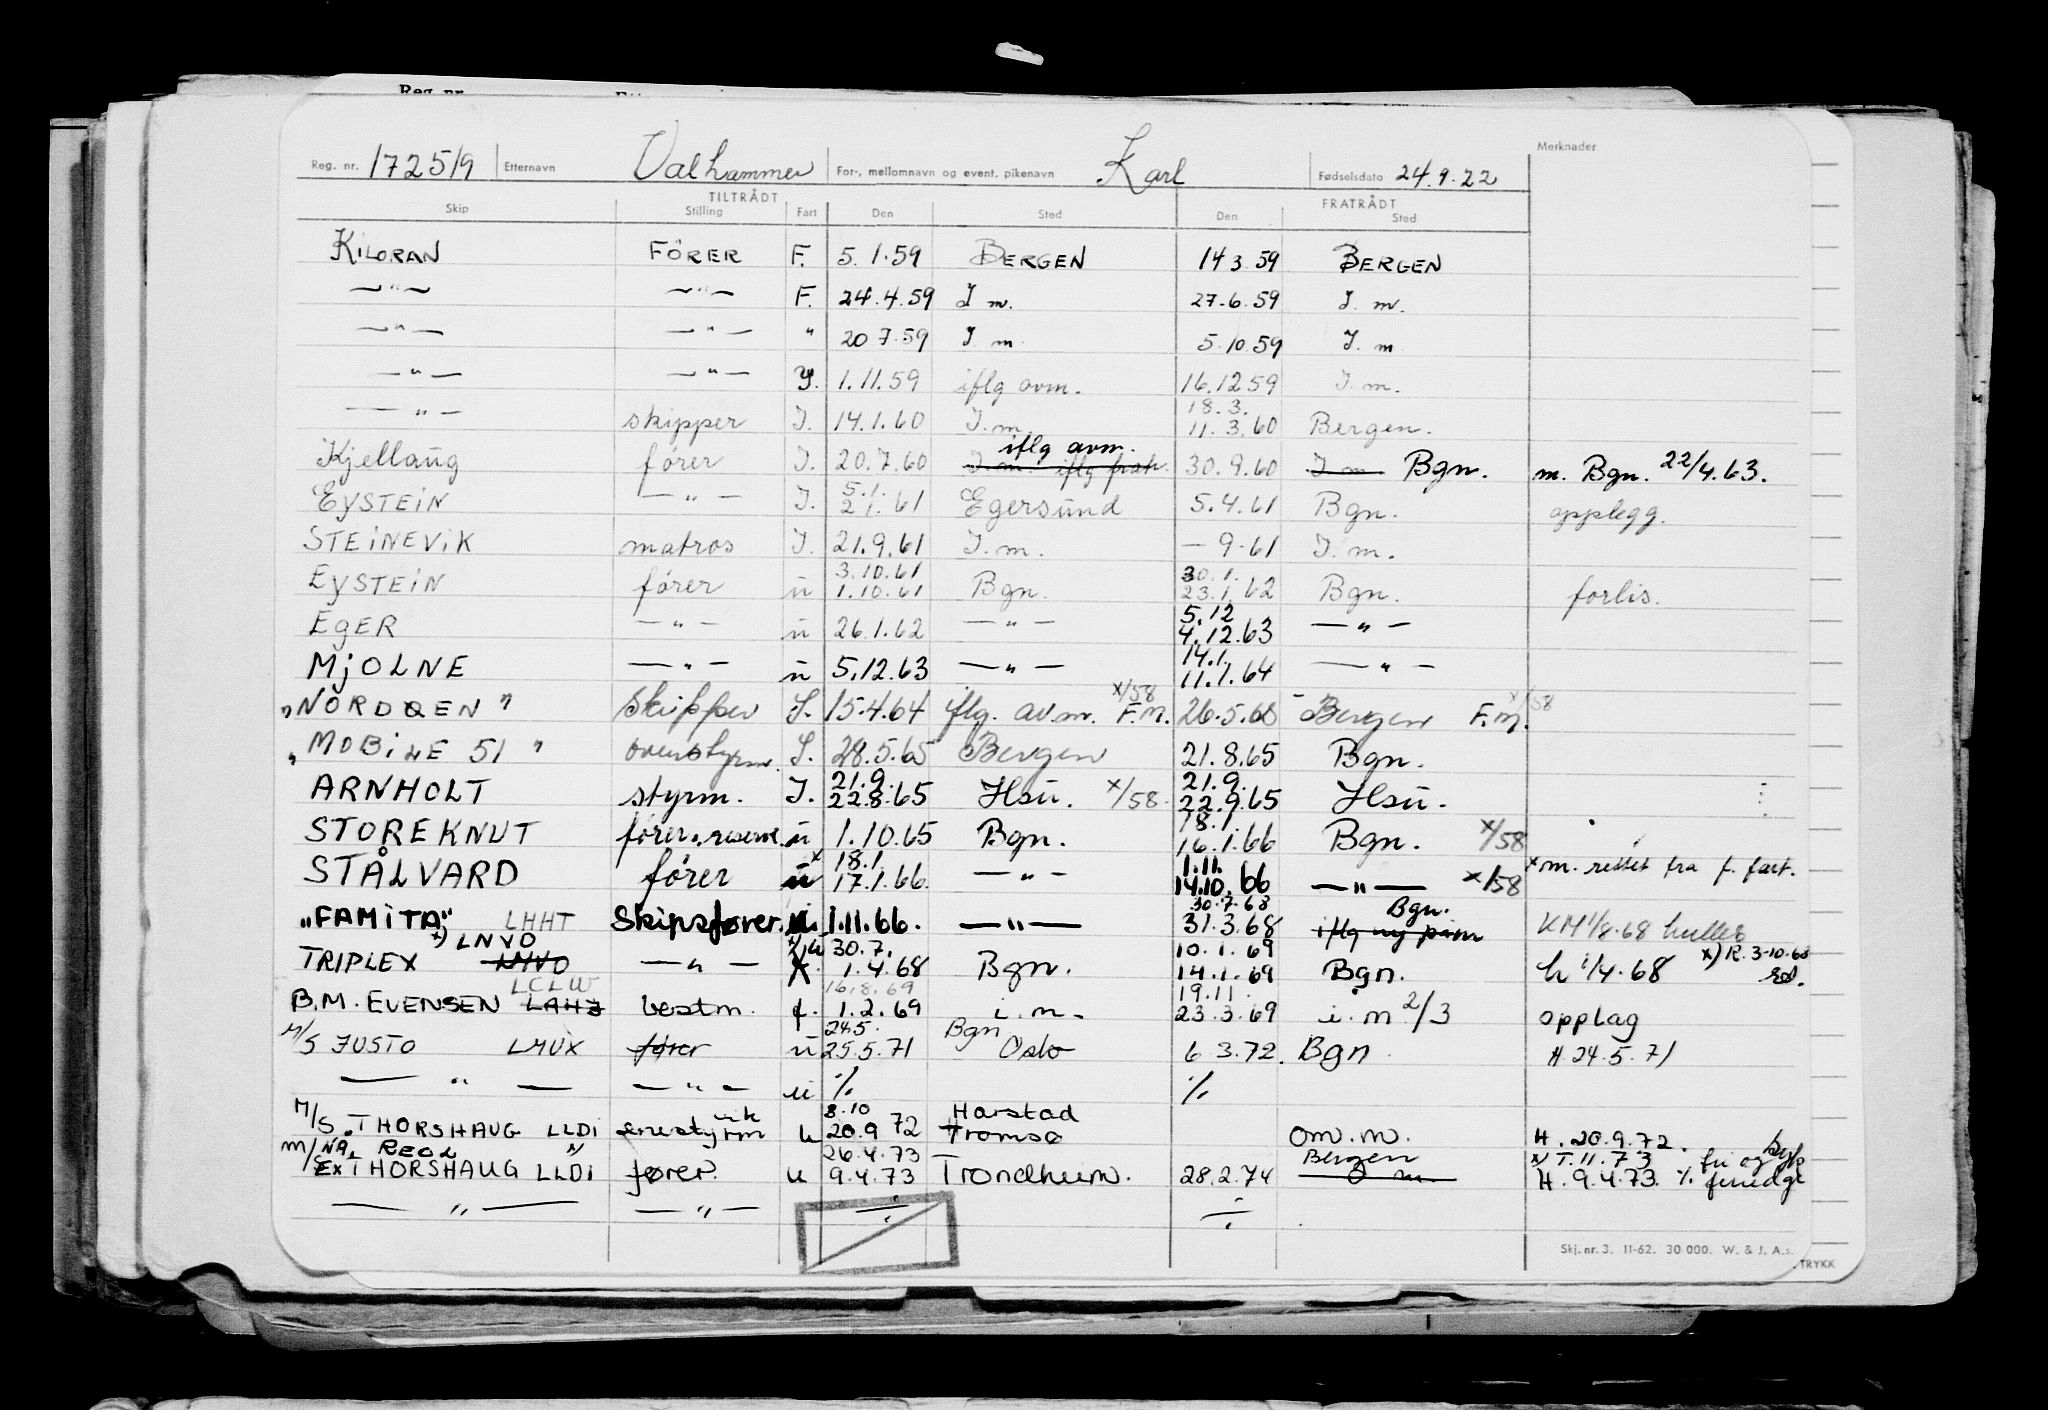 Reg. nr.
Reg. nr. 172519 Etternavn Valhammer For-, mellomnavn og event. pikenavn Karl Fødselsdato 24.9.22 Merknader
TILTRÅDT FRATRÅDT
Skip Stilling Fart Den Sted Den Sted
KILORAN FÖRER F. 5.1.59 BERGEN 14 3.59 BERGEN
—"— —"— F. 24.4.59 I m. 27.6.59 I. m.
—"— —"— " 20 7.59 I m. 5.10.59 I. m
—"— —"— 1.11.59 iflg avm. 16.12 59 I. m.
—"— skipper I. 14.1.60 I. m. 18.3. 11.3.60 Bergen.
Kjellaug fører I. 20.7.60 iflg avm. I. m. iflg fratr. 30.9.60 I m Bgn. m. Bgn. 22/4.63.
EYSTEIN —"— I. 5.1. 2 1.61 Egersund 5.4.61 Bgn. opplegg.
STEINEVIK matros I. 21.9.61 I. m. – 9.61 I. m.
EYSTEIN fører u 3.10.61 1.10.61 Bgn. 30.1. 23.1.62 Bgn. forlis.
EGER —"— u 26.1.62 —"— 5.12 4.12.63 —"—
MJOLNE —"— u 5.12.63 —"— 14.1. 11.1.64 —"—
"NORDØEN" Skipper I. 15.4.64 iflg. av.m. F.M. x/58 26.5.65 Bergen F.M. x/58
"MOBILE 51" overstyrm. I. 28.5.65 Bergen 21.8.65 Bgn.
ARNHOLT styrm. I. 21.9. 22.8.65 Hsu. x/58 21.9. 22.9.65 Hsu.
STOREKNUT fører, reserve. u 1.10.65 Bgn. 18.1. 16.1.66 Bgn. x/58
STÅLVARD fører u x 18.1. 17.1.66. —"— 1.11. 14.10.66 —"— x/58 x m. rettet fra f. fart.
"FAMITA" LHHT Skipsfører. u 1.11.66. —"— 30.7.68 31.3.68 Bgn. iflg ny påm KM 1/8.68 hullet
TRIPLEX x) LNVO LMVO —"— x) u 30.7. 1.4.68 Bgn. 10.1.69 14.1.69 Bgn. h 1/4.68 x) R. 3-10.68
B.M. EVENSEN LCLW LAHJ bestm. f. 16.8.69 1.2.69 i. m. 19.11. 23.3.69 i. m 2/3 opplag
M/S JUSTO LMUX fører u 24.5. 25.5.71 Bgn Oslo 6 3.72. Bgn. H.24.5.71
—"— —"— u % %
M/S. THORSHAUG LLDI enestyrm u 8.10 20.9 72 Harstad Tromsø om. m. H. 20.9.72.
M/ REOL EX THORSHAUG LLDI fører. u 26.4.73 9.4.73 Trondheim. 28.2.74 Bergen x) T.11.73 H. 9.4.73.
—"— —"— ÷ ÷
Skj. nr. 3. 11-62. 30 000. W. & J. A.s.
TRYKK